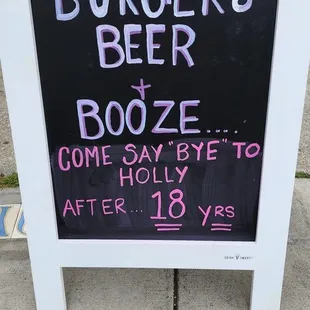 BURGERS
BEER
+
BOOZE....
COME SAY "BYE" TO
HOLLY
AFTER... 18 YRS